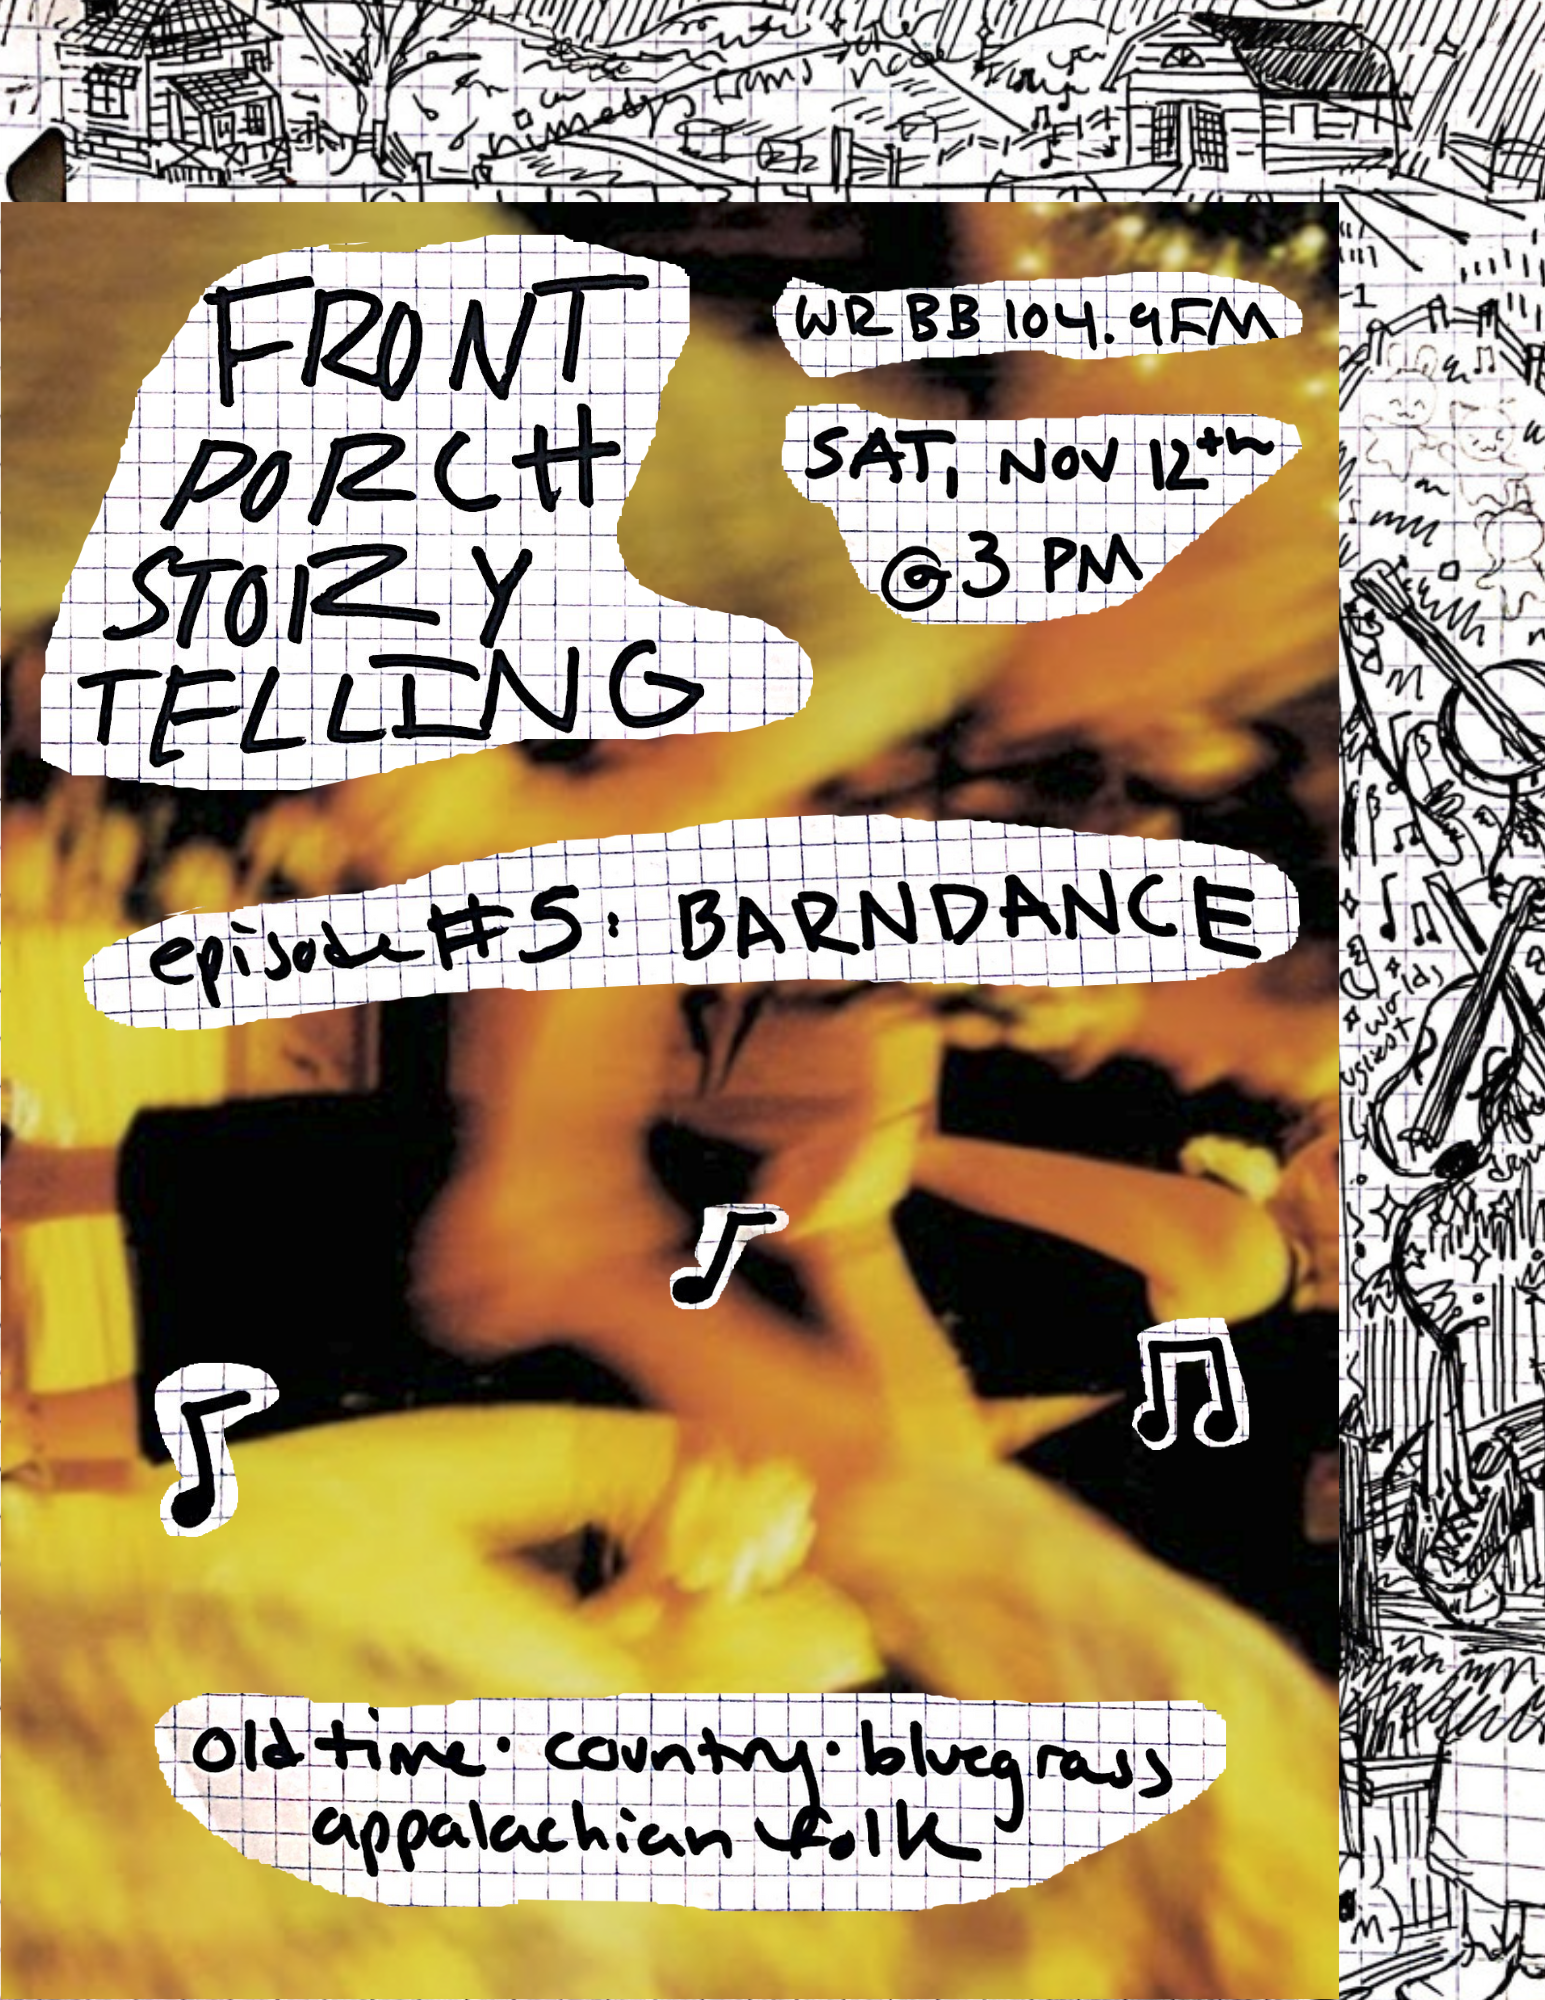 FRONT
PORCH
STORY
TELLING
WRBB 104.9FM
SAT, NOV 12th
@ 3 PM
episode #5: BARNDANCE
old time · country · bluegrass
appalachian folk
worlds
ugliest